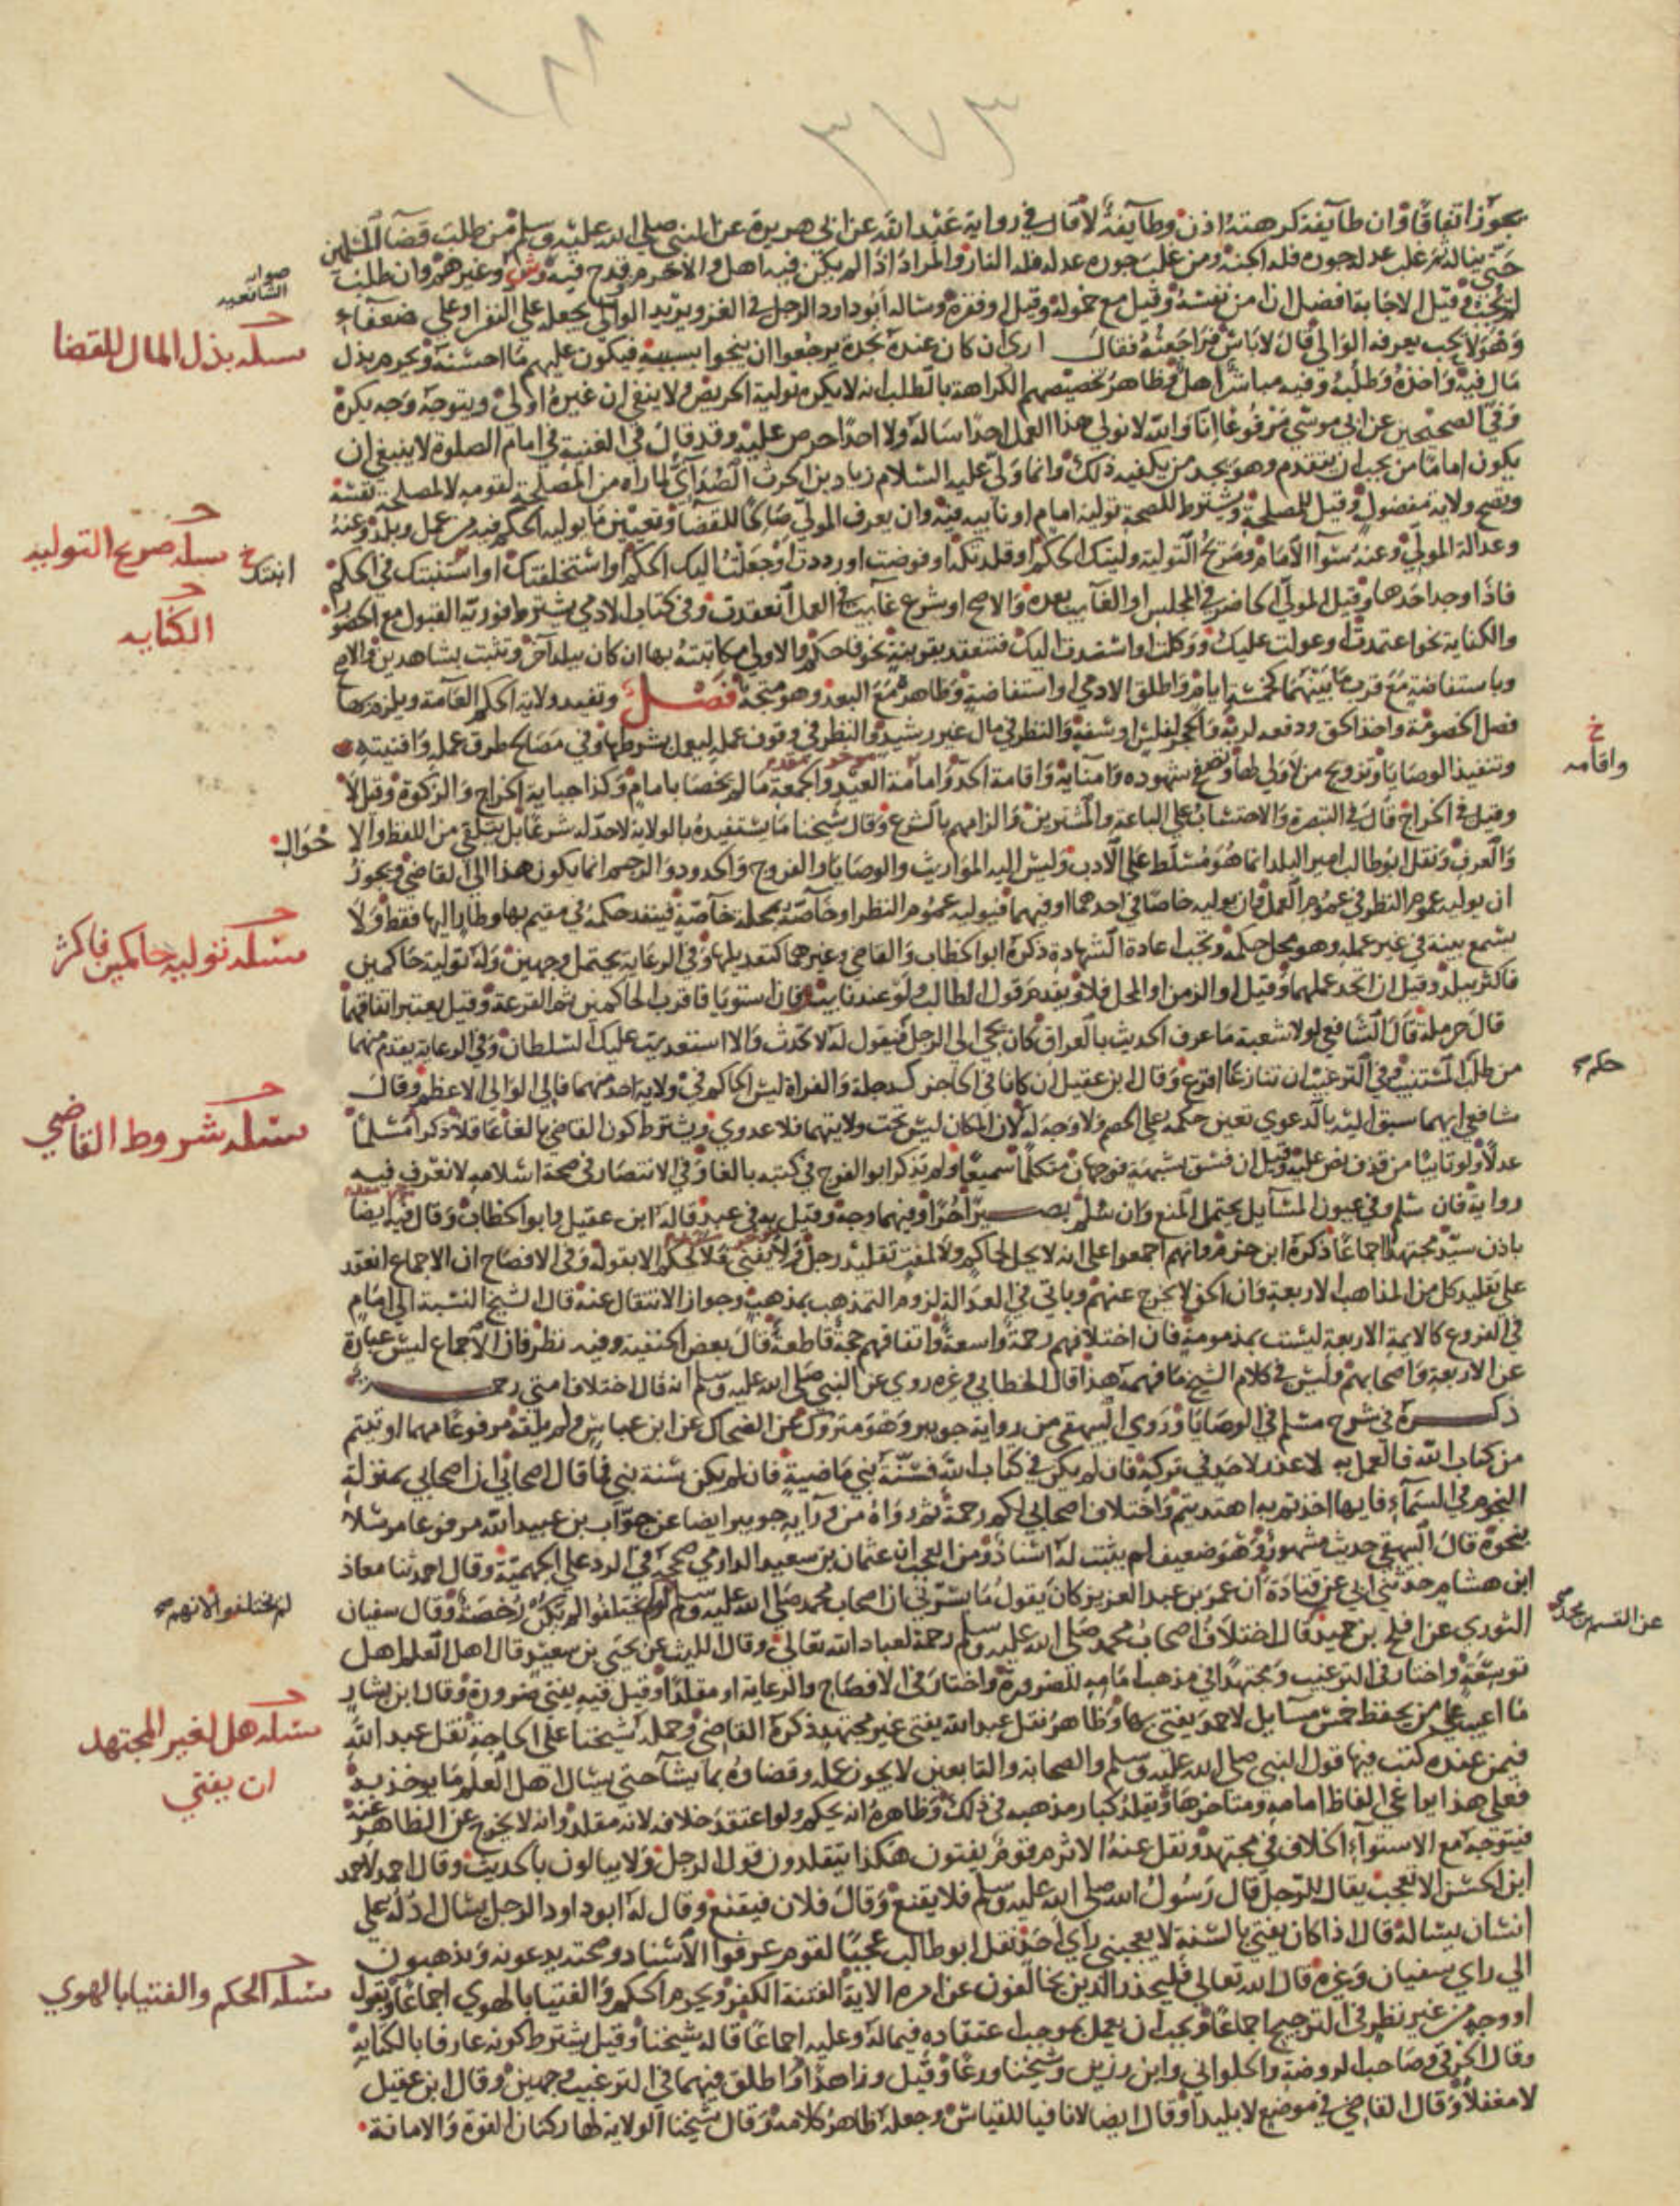 ١٨٨
٣٧٣
يجوز اتفاقا وان طايفة كرهته اذن وطايفة لا قال في رواية عبد الله عن ابي هريرة عن النبي صلى الله عليه وسلم من طلب قضآ المسلمين
حتى يناله ثم غلب عدله جوره فله الجنة ومن غلب جوره عدله فله النار والمراد اذا لم يكن فيه اهل والا حرم وقدح فيه وش وغيرهم وان طلب
صوابه الشافعيه
لم يجب وقيل الاجابة افضل ان امن نفسه وقيل مع خموله وقيل او فقره وساله ابو داود الرجل في الغزو يريد الوالي يجعله على النفر او على ضعفاء
وهو لا يحب يعرفه الوالي قال لا باس فراجعته فقال ارى ان كان عنده نجدة يرجعوا ان ينجوا بسببه فيكون عليهم ما احسنه ويحرم بذل
مسله بذل المال للقضا
مال فيه واخذه وطلبه وفيه مباشر اهل وظاهر تخصيصهم الكراهة بالطلب انه لا يكره تولية الحريص ولا ينفي ان غيره اولى ويتوجه وجه يكره
وفي الصحيحين عن ابي موسى مرفوعا انا والله لا نولي هذا العمل احدا ساله ولا احدا حرص عليه وقد قال في الغنية في امام الصلوة لا ينبغي ان
يكون اماما من يحب ان يتقدم وهو يجد من يكفيه ذلك وانما ولى عليه السلام زياد بن الحرث الصدآي لما راه من المصلحة لقومه لا لمصلحة نفسه
وتصح ولاية مفضول وقيل لمصلحة ويشترط للصحة تولية امام او نايبه فيه وان يعرف المولي صالحا للقضا وتعيين ما يوليه الحكم فيه من عمل وبلد وعنه
وعدالة المولي وعنه سوآ الامام وصريح التولية وليتك الحكم او قلدتكه او فوضت او رددت او جعلت اليك الحكم او استخلفتك او استنبتك في الحكم
مسله صريح التوليه
انبتك خ
فاذا وجد احدها وقيل المولى الحاضر في المجلس او الغايب بعده والاصح او شرع غايب في العمل انعقدت وفي كتاب الادمي يشترط فورية القبول مع الحضور
الكنايه
والكناية نحو اعتمدت او عولت عليك ووكلت او اسندت اليك فتنعقد بقرينة نحو فاحكم والاولى مكاتبته بها ان كان ببلد آخر وتثبت بشاهدين والاصح
وباستفاضة مع قرب ما بينهما كخمسة ايام واطلق الادمي او استفاضة وظاهره مع البعد وهو متجه فصل وتفيد ولاية الحكم العامة ويلزم بها
فصل الخصومة واخذ الحق ودفعه لربه والحجر لفلس او سفه والنظر في مال غير رشيد والنظر في وقوف عمله ليعمل بشرطها وفي مصالح طرق عمله وافنيته
خ واقامه
وتنفيذ الوصايا وتزويج من لا ولي لها وتصفح شهوده وامنآيه واقامة الحد وامامة العيد والجمعة ما لم يخصا بامام وكذا جباية الخراج والزكوة وقيل لا
وقيل في الخراج قال في التبصرة والاحتساب على الباعة والمشترين والزامهم بالشرع وقال شيخنا ما يستفيده بالولاية لا حد له شرعا بل يتلقى من اللفظ والاحوال
والعرف ونقل ابو طالب امير البلد انما هو مسلط على الادب وليس اليه المواريث والوصايا والفروج والحدود والرجم انما يكون هذا الى القاضي ويجوز
ان يوليه عموم النظر في عموم العمل وان يوليه خاصا في احدهما او فيهما فيوليه عموم النظر او خاصة بمحلة خاصة فينفذ حكمه في مقيم بها وطار اليها فقط ولا
يسمع بينة في غير عمله وهو محل حكمه وتجب اعادة الشهادة ذكره ابو الخطاب والقاضي وغيرهما كتعديلها وفي الرعاية يحتمل وجهين وله تولية حاكمين
مسله توليه حاكمين فاكثر
فاكثر ببلد وقيل ان اتحد عملهما وقيل او الزمن او المحل فلا ويقدم قول الطالب ولو عند نايب وان استويا فاقرب الحاكمين ثم القرعة وقيل يعتبر اتفاقهما
قال حرملة قال الشافعي لولا شعبة ما عرف الحديث بالعراق كان يجي الى الرجل فيقول له لا تحدث والا استعديت عليك السلطان وفي الرعاية يقدم منهما
حكم
من طلب المستنيب وفي الترغيب ان تنازعا اقرع وقال ابن عقيل ان كانا في الجانبين كدجلة والفراة ليس الحاكم في ولاية احد منهما فالى الوالي الاعظم وقال
شافعي ايهما سبق اليه بالدعوي تعين حكمه على الخصم ولا وجه له لان المكان ليس تحت ولايتهما فلا عدوي ويشترط كون القاضي بالغا عاقلا ذكرا مسلما
مسله شروط القاضي
عدلا ولو تايبا من قذف نص عليه وقيل ان فسق بشبهة فوجهان متكلما سميعا ولم يذكر ابو الفرج في كتبه بالغا وفي الانتصار في صحة اسلامه لا نعرف فيه
رواية فان سلم وفي عيون المسايل يحتمل المنع وان سلم بصيرا حرا وفيهما وجه وقيل به في عبد قاله ابن عقيل وابو الخطاب وقال فيه ايضا
باذن سيد مجتهدا اجماعا ذكره ابن حزم وانهم اجمعوا على انه لا يحل لحاكم ولا لمفت تقليد رجل ولا يفتي فلا يحكم الا بقوله وفي الافصاح ان الاجماع انعقد
على تقليد كل من المذاهب الاربعة وان الحق لا يخرج عنهم وياتي في العدالة لزوم التمذهب بمذهب وجواز الانتقال عنه قال الشيخ النسبة الى امام
في الفروع كالايمة الاربعة ليست بمذمومة فان اختلافهم رحمة واسعة واتفاقهم حجة قاطعة قال بعض الحنفية وفيه نظر فان الاجماع ليس عبارة
عن الاربعة واصحابهم وليس في كلام الشيخ ما فهمه هذا قال الخطابي وغيره روي عن النبي صلى الله عليه وسلم انه قال اختلاف امتي رحمة
ذكره في شرح مسلم في الوصايا وروي البيهقي من رواية جويبر وهو متروك عن الضحاك عن ابن عباس ولم يلقه مرفوعا مهما اوتيتم
من كتاب الله فالعمل به لا عذر لاحد في تركه فان لم يكن في كتاب الله فسنة نبي ماضية فان لم يكن سنة نبي فما قال اصحابي ان اصحابي بمنزلة
النجوم في السمآء فايها اخذتم به اهتديتم واختلاف اصحابي لكم رحمة ثم رواه من رواية جويبر ايضا عن جواب بن عبيد الله مرفوعا مرسلا
بنحوه قال البيهقي حديث مشهور وهو ضعيف لم يثبت له اسناد ومن العجب ان عثمان بن سعيد الدارمي صححه في الرد على الجهمية وقال احمد ثنا معاذ
ابن هشام حدثني ابي عن قتادة ان عمر بن عبد العزيز كان يقول ما يسرني ان اصحاب محمد صلى الله عليه وسلم لم يختلفوا لم تكن رخصة وقال سفيان
لم يختلفوا لانهم
عن القسم بن محمد
الثوري عن افلح بن حميد قال اختلاف اصحاب محمد صلى الله عليه وسلم رحمة لعباد الله تعالى وقال الليث عن يحيى بن سعيد قال اهل العلم اهل
توسعة واختار في الترغيب ومجتهدا في مذهب امامه للضرورة واختار في الافصاح والرعاية او مقلدا وقيل فيه يفتي ضرورة وقال ابن بشار
ما اعيب على من يحفظ خمس مسايل لاحمد يفتي بها وظاهر نقل عبد الله يفتي غير مجتهد ذكره القاضي وحمله شيخنا على الحاجة نقل عبد الله
مسله هل لغير المجتهد
ان يفتي
فيمن عنده كتب فيها قول النبي صلى الله عليه وسلم والصحابة والتابعين لا يجوز عمله وقضاوه بما يشآ حتى يسال اهل العلم ما يوخذ به
فعلى هذا يراعي الفاظ امامه ومتاخرها ويقلد كبار مذهبه في ذلك وظاهره انه يحكم ولو اعتقد خلافه لانه مقلد وانه لا يخرج عن الظاهر عنه
فيتوجه مع الاستوآء الخلاف في مجتهد ونقل عنه الاثرم قوم يفتون هكذا يتقلدون قول الرجل ولا يبالون بالحديث وقال احمد لاحمد
ابن الحسن الا تعجب يقال للرجل قال رسول الله صلى الله عليه وسلم فلا يقنع وقال فلان فيقنع وقال له ابو داود الرجل يسال ادله على
انسان يساله قال اذا كان يفتي بالسنة لا يعجبني راي احد نقل ابو طالب عجبا لقوم عرفوا الاسناد وصحته يدعونه ويذهبون
الى راي سفيان وغيره قال الله تعالى فليحذر الذين يخالفون عن امره الاية الفتنة الكفر ويحرم الحكم والفتيا بالهوي اجماعا وبقول
مسله الحكم والفتيا بالهوي
او وجه من غير نظر في الترجيح اجماعا ويجب ان يعمل بموجب اعتقاده فيما له وعليه اجماعا قاله شيخنا وقيل يشترط كونه عارفا بالكتابة
وقال الخرقي وصاحب الروضة والحلواني وابن رزين وشيخنا ورعا وقيل وزاهدا واطلق فيهما في الترغيب وجهين وقال ابن عقيل
لا مغفلا وقال القاضي في موضع لا بليدا وقال ايضا لا نافيا للقياس وجعله ظاهر كلامه وقال شيخنا الولاية لها ركنان القوة والامانة